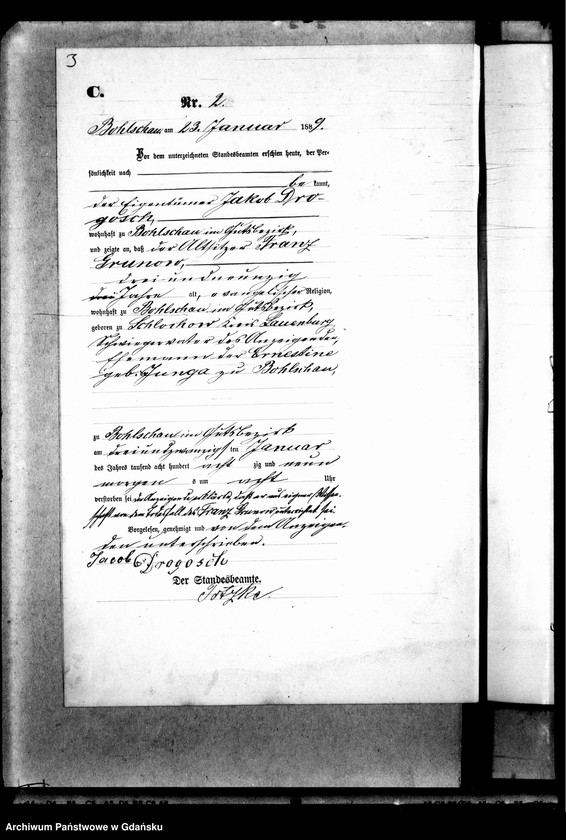 3
C.
Nr. 2.
Bohlschau am 23. Januar 1889.
Vor dem unterzeichneten Standesbeamten erschien heute, der Per-
sönlichkeit nach
be kannt,
der Eigentümer Jakob Dro-
gosch,
wohnhaft zu Bohlschau im Gutsbezirk,
und zeigte an, daß der Altsitzer Franz
Grunow,
drei und neunzig
Jahre alt, evangelischer Religion,
wohnhaft zu Bohlschau im Gutsbezirk,
geboren zu Kreis Lauenburg,
Schwiegervater des Anzeigenden,
Ehemann der Ernestine
geb. Junga zu Bohlschau,
zu Bohlschau im Gutsbezirk
am dreiundzwanzigsten Januar
des Jahres tausend acht hundert acht zig und neun
morgens um acht Uhr
verstorben sei, Anzeigender erklärte, daß er aus eigener Wissen-
schaft von dem Todesfall des Franz Grunow unterrichtet sei
Vorgelesen, genehmigt und von dem Anzeigen-
den unterschrieben.
Jacob Drogosch
Der Standesbeamte.
Archiwum Państwowe w Gdańsku